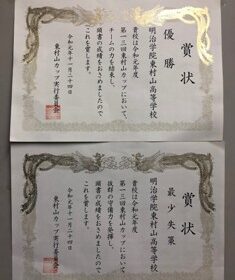 賞状
優勝
明治学院東村山高等学校
貴校は令和元年度
第一三回東村山カップにおいて、
チーム一丸となり
頭書の成績をおさめましたので
これを賞します。
令和元年十一月二十四日
東村山カップ実行委員会
賞状
最少失策
明治学院東村山高等学校
貴校は令和元年度
第一三回東村山カップにおいて、
抜群の守備力を発揮し、
頭書の成績をおさめましたので
これを賞します。
令和元年十一月二十四日
東村山カップ実行委員会